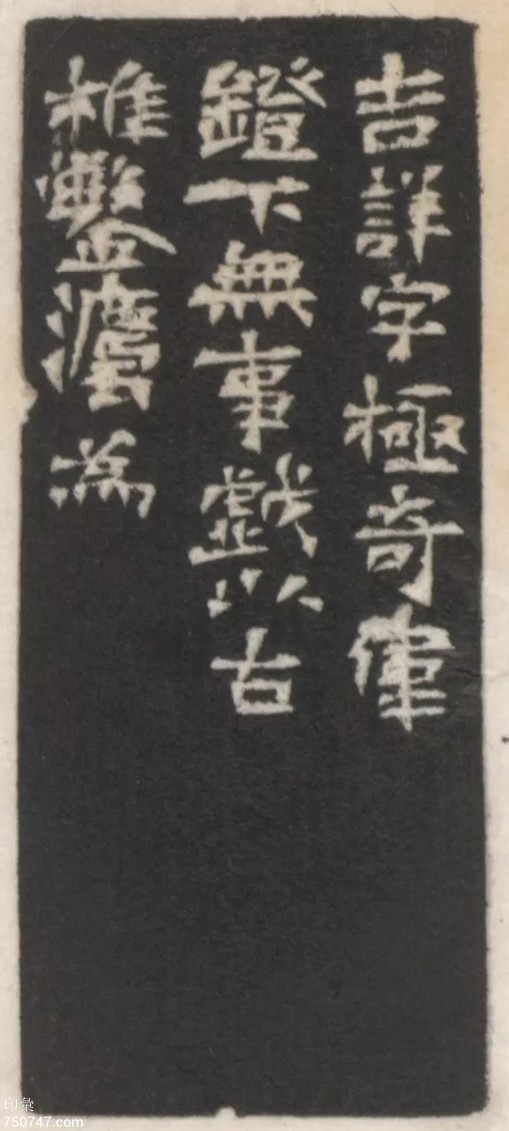 吉詳字極奇偉
鐙下無事戲以古
椎鑿灋為
印彙
750747.com